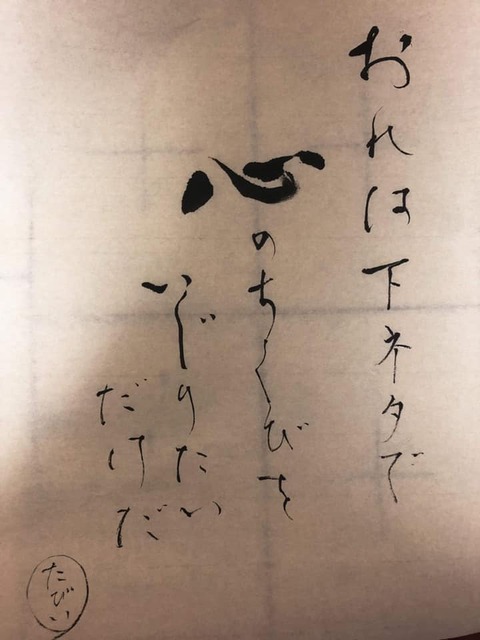 おれは下ネタで
心のちくびを
いじりたい
だけだ
たびい